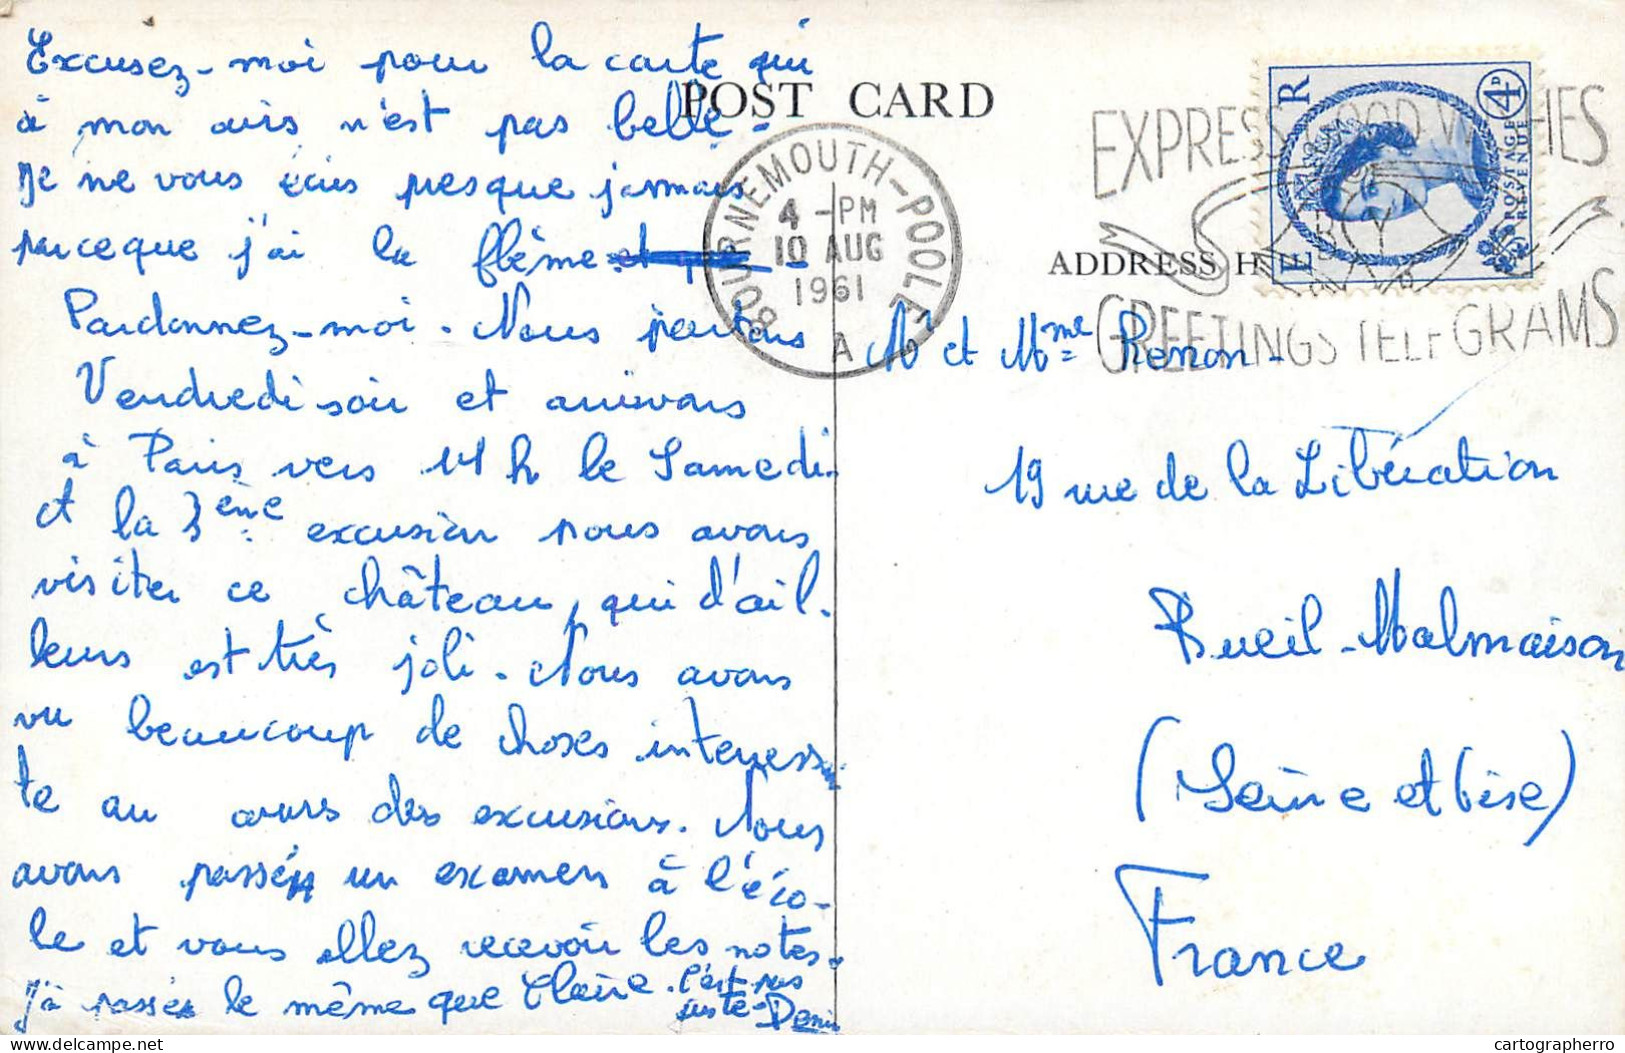 Excusez-moi pour la carte qui
à mon avis n'est pas belle.
Je ne vous écris presque jamais
parceque j'ai la flème et
Pardonnez-moi. Nous partons
Vendredi soir et arrivons
à Paris vers 11 h le Samedi.
et la 3ème excursion nous avons
visiter ce château, qui d'ail-
leurs est très joli. Nous avons
vu beaucoup de choses interessan
te au cours des excursions. Nous
avons passé un examen à l'éco-
le et vous allez recevoir les notes.
J'ai passé le même que Claire. C'est pas
juste. Denis
POST CARD
BOURNEMOUTH-POOLE
4 -PM
10 AUG
1961
A
EXPRESS GOOD WISHES
BY
GREETINGS TELEGRAMS
E R
4D
POSTAGE
REVENUE
ADDRESS
Mr et Mme Renon-
19 rue de la Libération
Rueil-Malmaison
(Seine et Oise)
France
delcampe.net
cartographerro